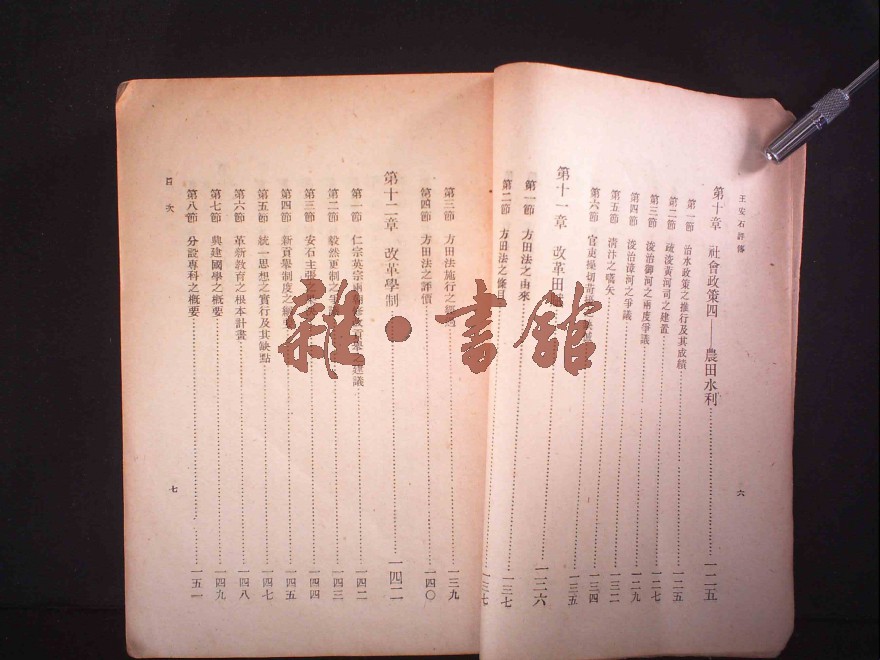 王安石評傳
六
第十章　社會政策四——農田水利……一二五
第一節　治水政策之推行及其成績……一二五
第二節　疏浚黃河司之建置……一二五
第三節　浚治御河之兩度爭議……一二七
第四節　浚治漳河之爭議……一二九
第五節　清汴之嚆矢……一三二
第六節　官吏操切……一三四
第十一章　改革田……一三五
第一節　方田法之由來……一三六
第二節　方田法之條目……一三七
第三節　方田法施行之……一三九
第四節　方田法之評價……一四〇
第十二章　改革學制……一四二
第一節　仁宗英宗兩朝……貢舉之建議……一四二
第二節　毅然更制之……一四三
第三節　安石主張……一四四
第四節　新貢舉制度之……一四五
第五節　統一思想之實行及其缺點……一四七
第六節　革新教育之根本計畫……一四八
第七節　興建國學之概要……一四九
第八節　分設專科之概要……一五一
目次
七
雜·書館